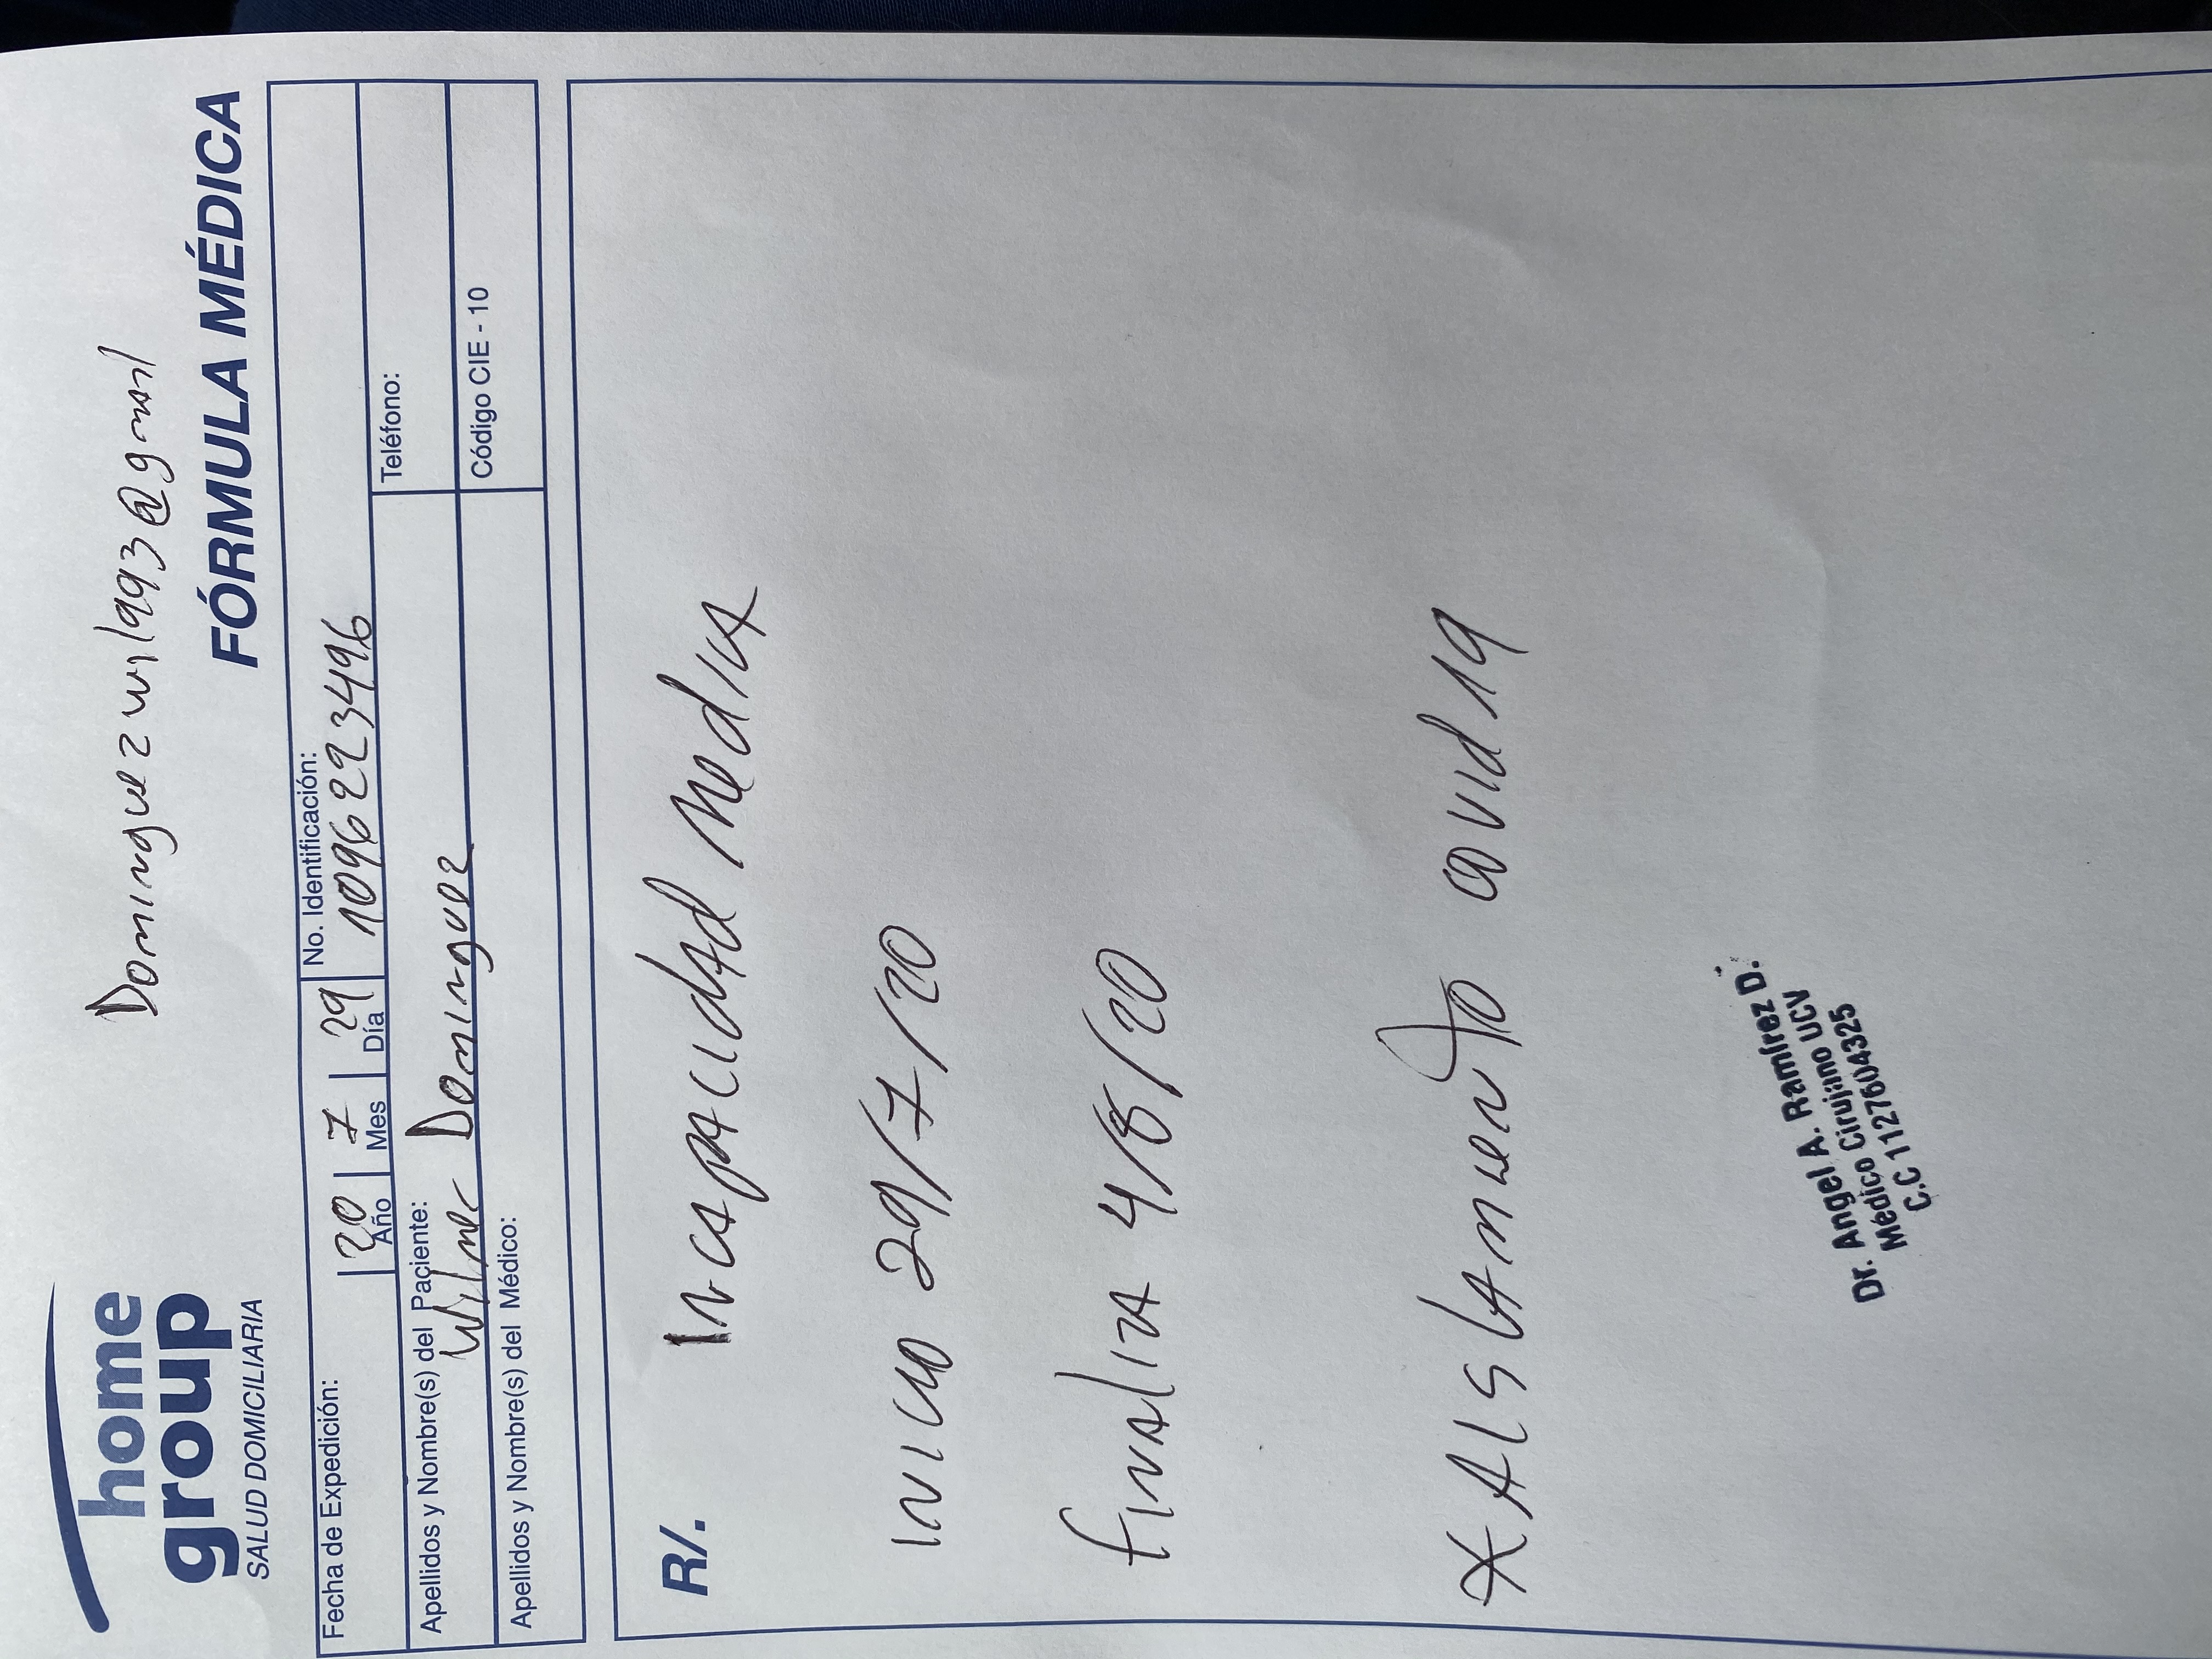 home
group
SALUD DOMICILIARIA
Dominguezwi1993@gmail
FÓRMULA MÉDICA
Fecha de Expedición:
20 7 29
Año Mes Día
No. Identificación:
1096223496
Apellidos y Nombre(s) del Paciente:
Wilmer Dominguez
Teléfono:
Apellidos y Nombre(s) del Médico:
Código CIE - 10
R/. Incapacidad Medica
Inicio 29/7/20
Finaliza 4/8/20
* Aislamiento covid 19
Dr. Angel A. Ramírez D.
Médico Cirujano UCV
C.C 1127604325